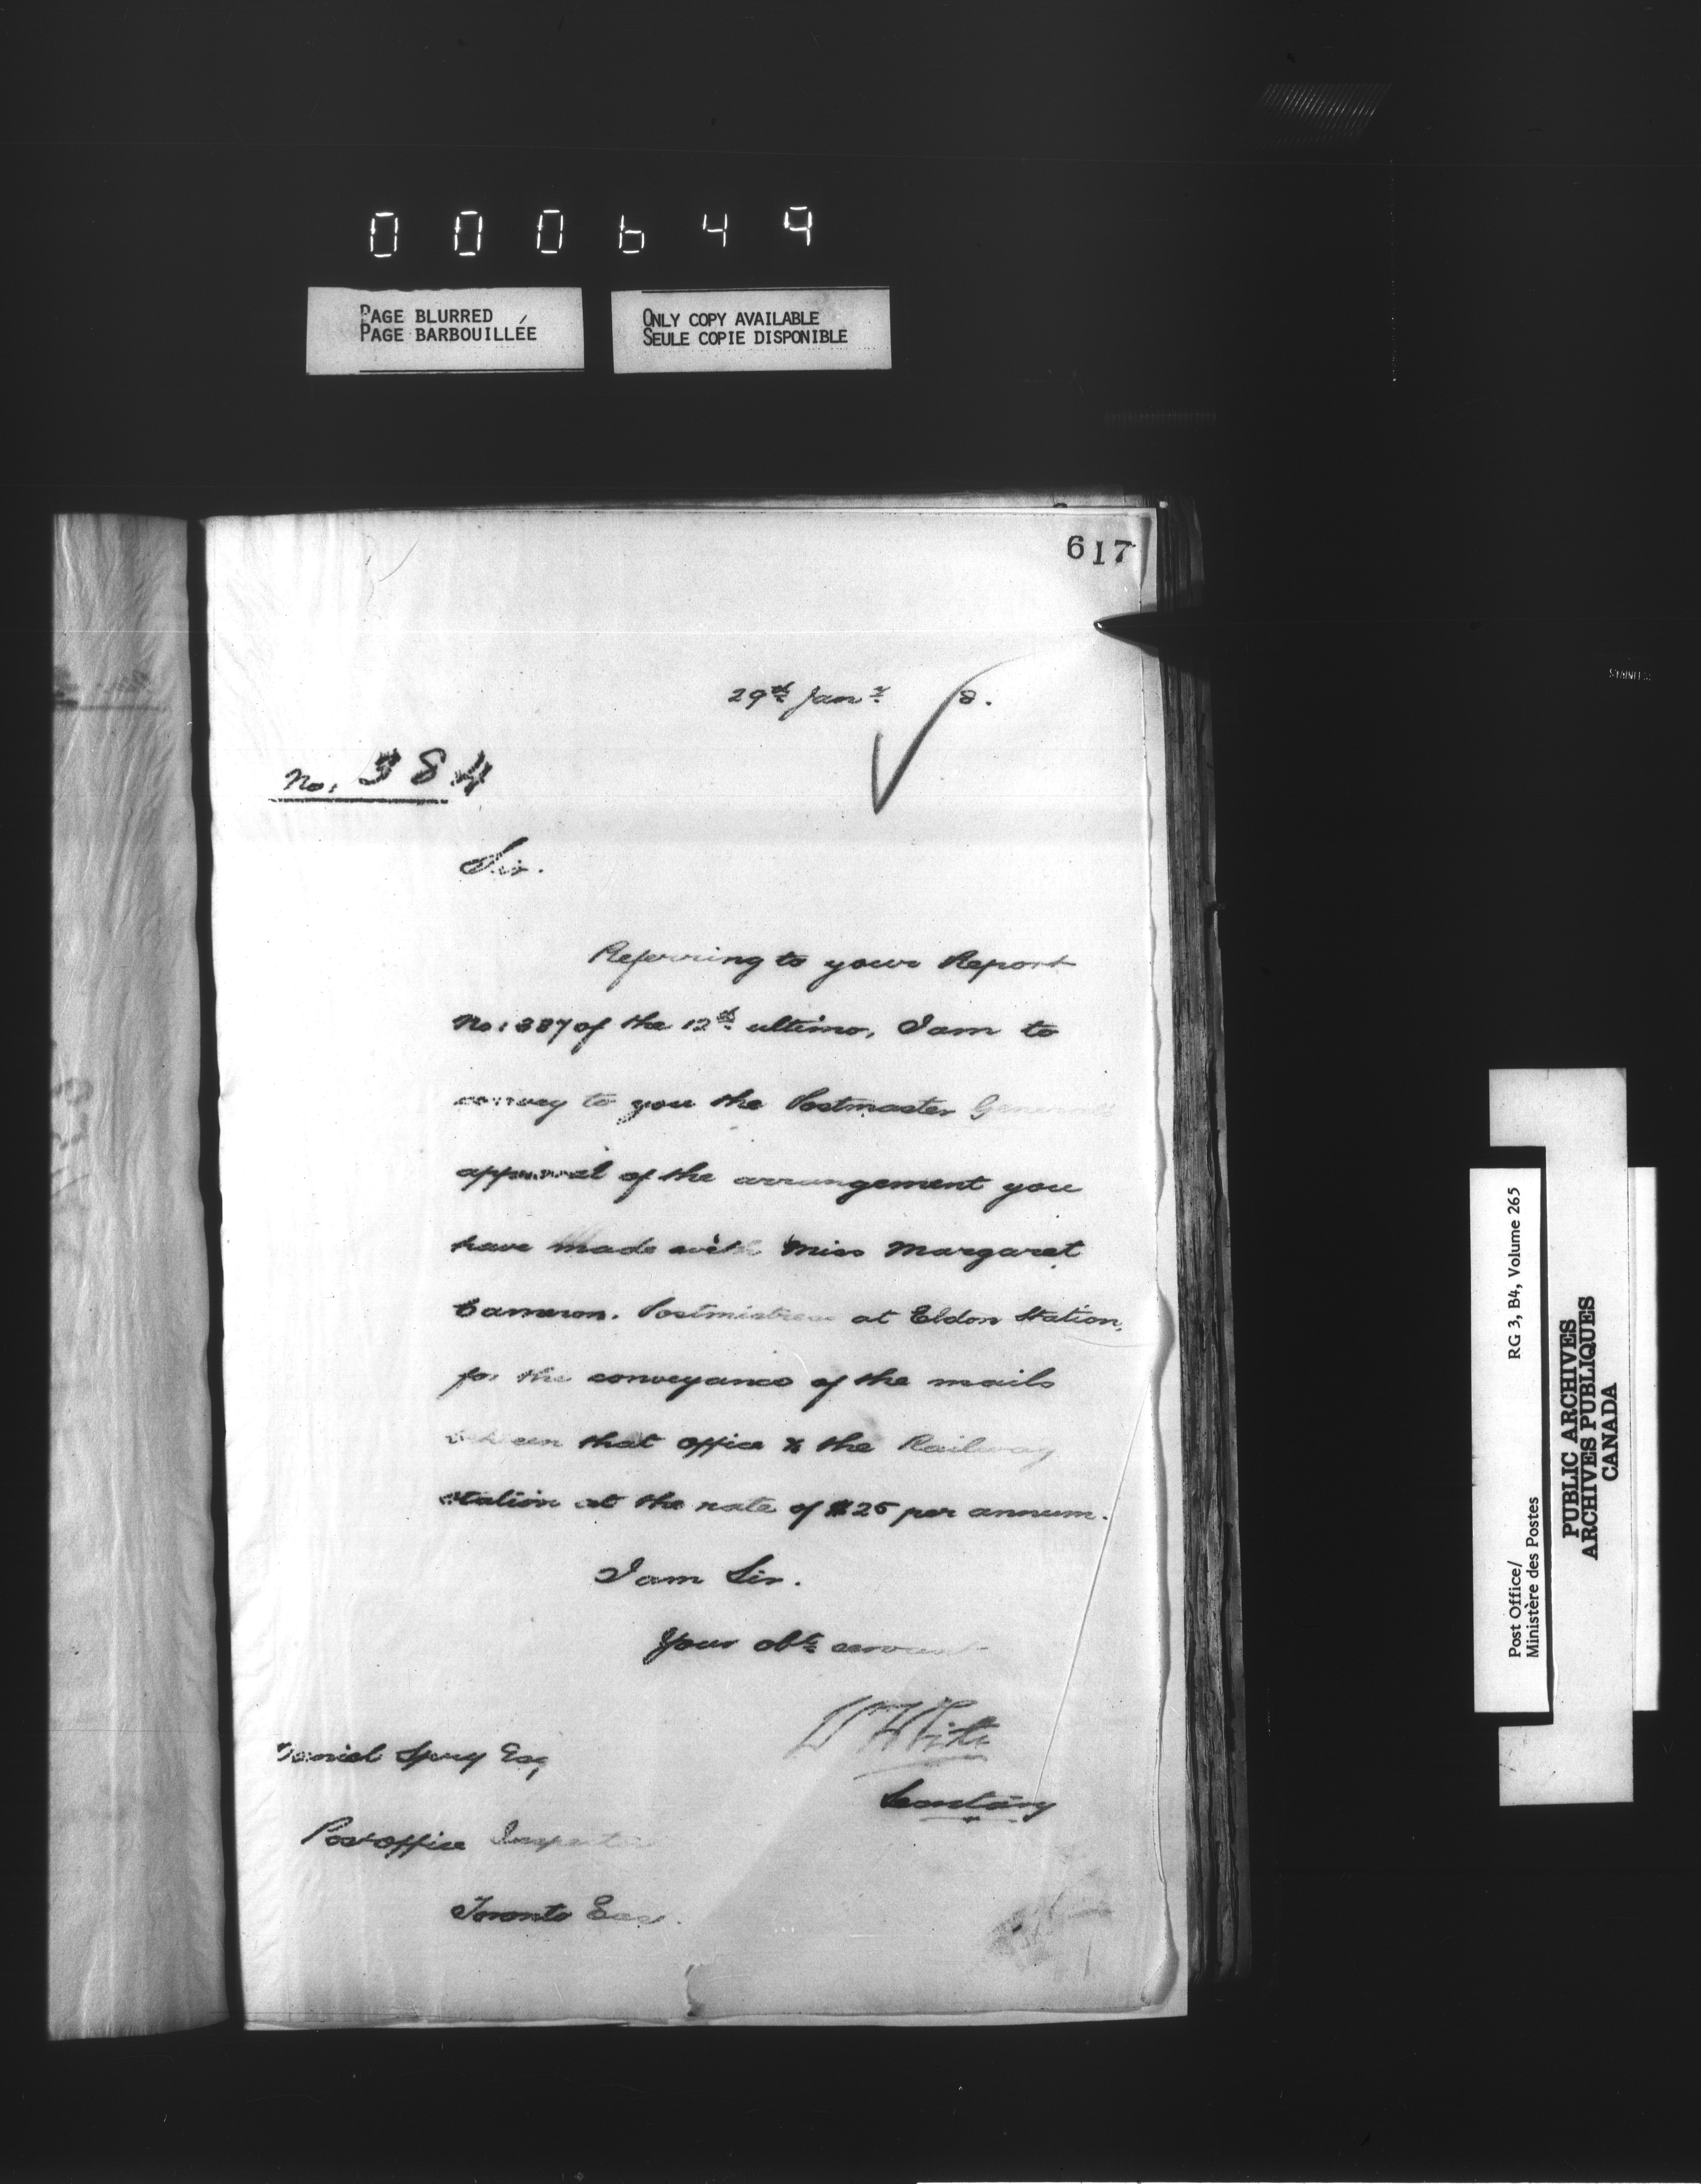 000649
PAGE BLURRED
PAGE BARBOUILLÉE
ONLY COPY AVAILABLE
SEULE COPIE DISPONIBLE
617
29th Jany 8.
No: 384
Sir.
Referring to your Report
No: 387 of the 12th ultimo, I am to
convey to you the Postmaster General's
approval of the arrangement you
have made with Miss Margaret
Cameron. Postmistress at Eldon Station,
for the conveyance of the mails
between that office & the Railway
station at the rate of $25 per annum.
I am Sir.
Your obt servant
W White
Secretary
Daniel Spry Esq
Post office Inspector
Toronto
Post Office/
Ministère des Postes
RG 3, B4, Volume 265
PUBLIC ARCHIVES
ARCHIVES PUBLIQUES
CANADA